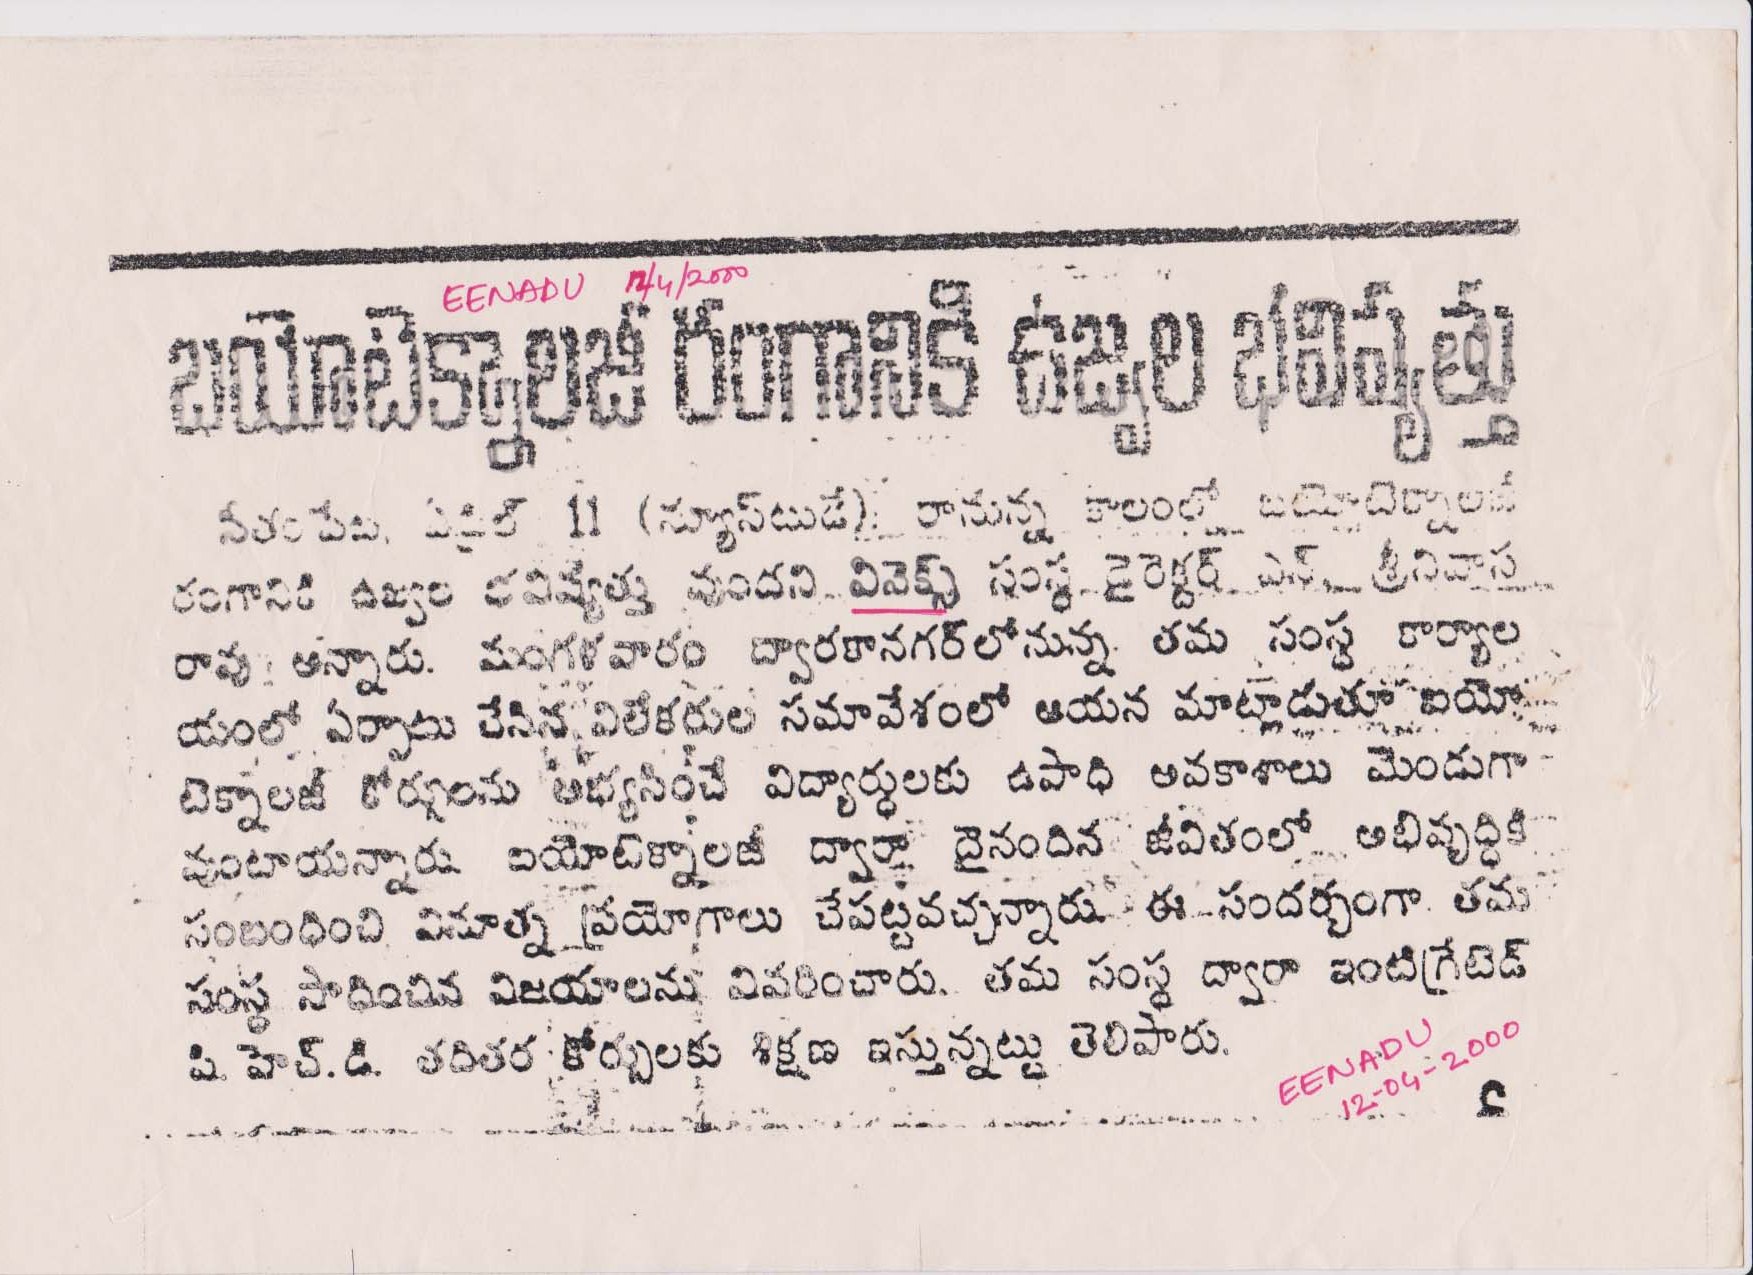 EENADU 12/4/2000
బయోటెక్నాలజీ రంగానికి ఉజ్వల భవిష్యత్తు
సీతంపేట, ఏప్రిల్ 11 (న్యూస్‌టుడే): రానున్న కాలంలో బయోటెక్నాలజీ
రంగానికి ఉజ్వల భవిష్యత్తు వుందని వివెక్స్ సంస్థ డైరెక్టర్ ఎన్. శ్రీనివాస
రావు అన్నారు. మంగళవారం ద్వారకానగర్‌లోనున్న తమ సంస్థ కార్యాల
యంలో ఏర్పాటు చేసిన విలేకరుల సమావేశంలో ఆయన మాట్లాడుతూ బయో
టెక్నాలజీ కోర్సులను అభ్యసించే విద్యార్థులకు ఉపాధి అవకాశాలు మెండుగా
వుంటాయన్నారు. బయోటెక్నాలజీ ద్వారా దైనందిన జీవితంలో అభివృద్ధికి
సంబంధించి వినూత్న ప్రయోగాలు చేపట్టవచ్చన్నారు. ఈ సందర్భంగా తమ
సంస్థ సాధించిన విజయాలను వివరించారు. తమ సంస్థ ద్వారా ఇంటిగ్రేటెడ్
పి.హెచ్.డి. తదితర కోర్సులకు శిక్షణ ఇస్తున్నట్టు తెలిపారు.
EENADU
12-04-2000